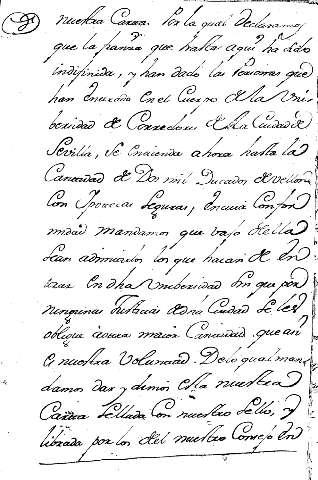 nuestra Carta. Por la qual declaramos
que la fianza que hasta aqui ha sido
indifinida, y han dado las Personas que
han entrado en el Cuerpo de la Uni
bersidad de Corredores de la Ciudad de
Sevilla, se entienda ahora hasta la
Cantidad de Dos mil Ducados de vellon
con Ipotecas seguras, en cuia confor
midad mandamos que vajo de ella
sean admitidos los que hacan de en
trar en dha Uniberidad sin que por
ningunas Justicias de dha Ciudad se les
oblige a otra maior Cantidad, que an
si es nuestra Voluntad. De lo qual man
damos dar y dimos esta nuestra
Carta sellada con nuestro sello, y
librada por los del nuestro Consejo en